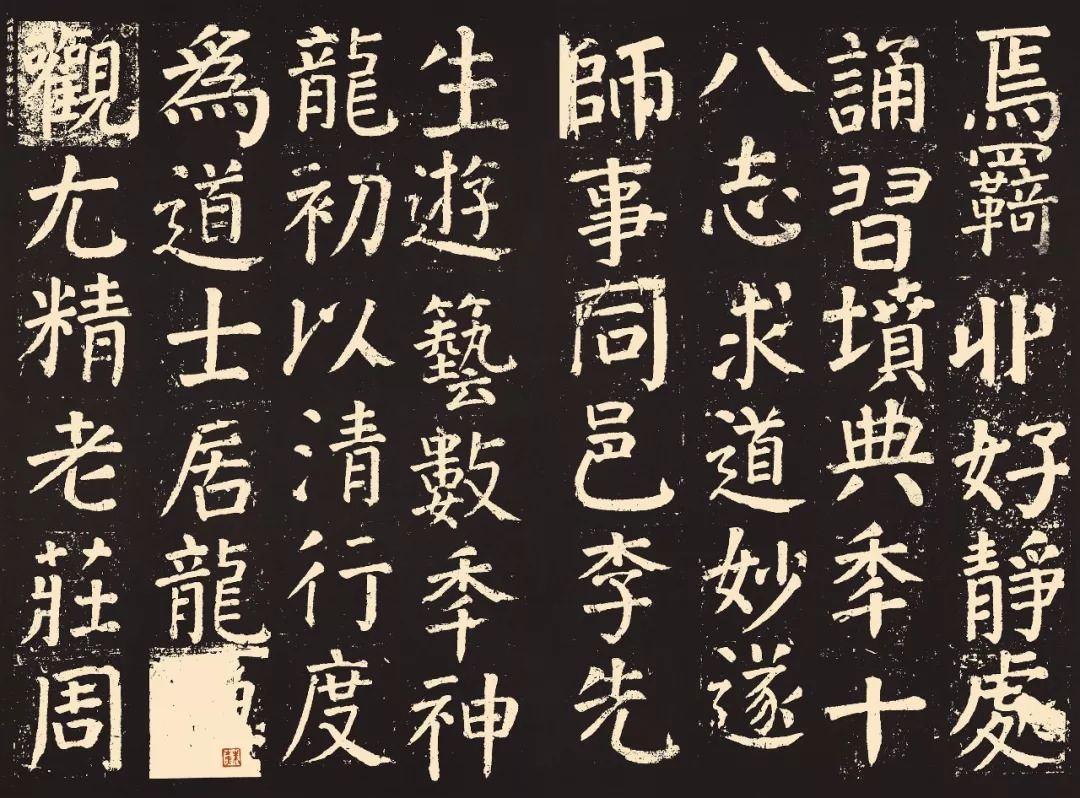 焉羇丱好靜處
誦習墳典秊十
八志求道妙遂
師事同邑李先
生遊藝數秊神
龍初以清行度
爲道士居龍
觀尤精老莊周